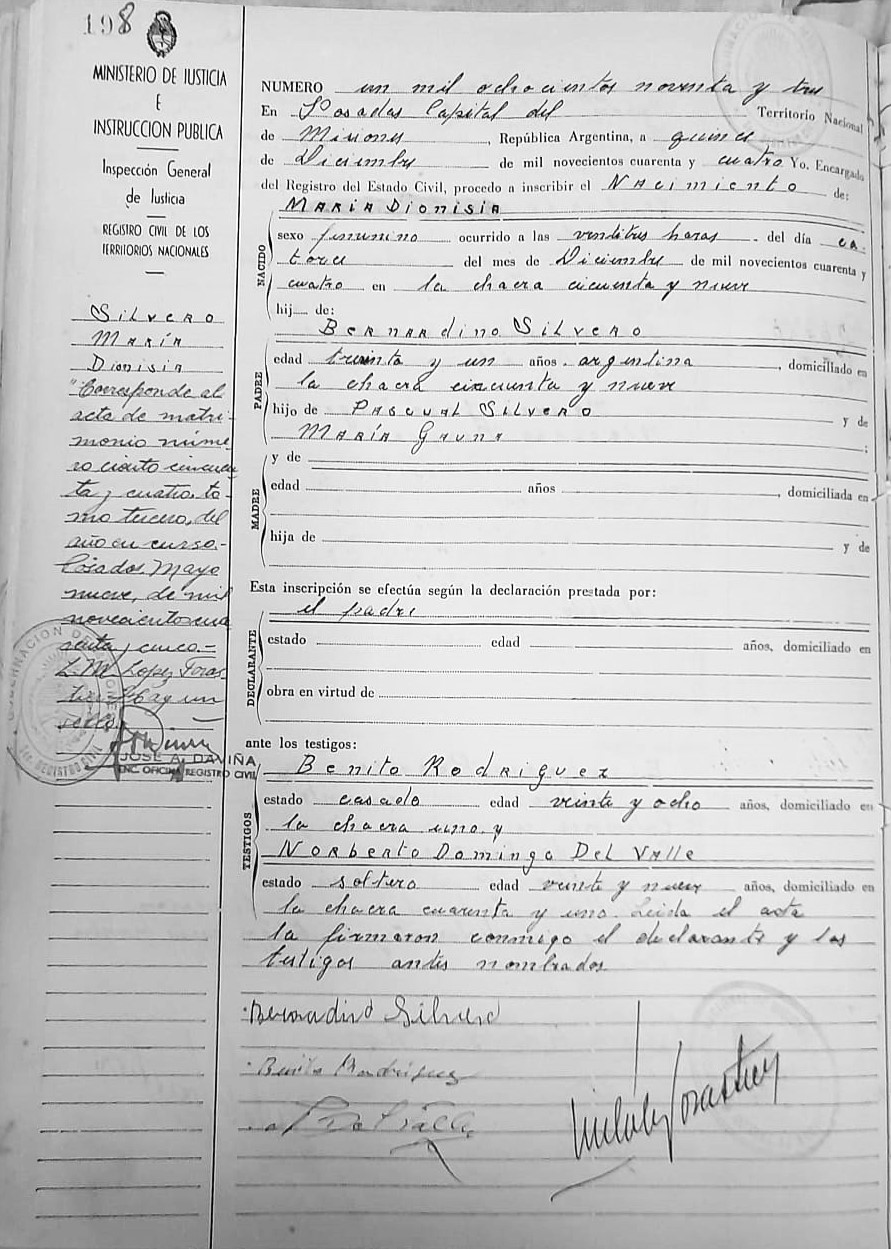 198
MINISTERIO DE JUSTICIA
E
INSTRUCCION PUBLICA
Inspección General
de Justicia
REGISTRO CIVIL DE LOS
TERRITORIOS NACIONALES
Silvero
María
Dionisia
"Corresponde al
acta de matri-
monio núme-
ro ciento cincuen
ta y cuatro, to-
mo tercero, del
año en curso.-
Posadas, Mayo
nueve, de mil
novecientos cua
renta y cinco.-
L. M. Lopez Foras
tier. Hay un
sello.
JOSE A. DAVIÑA
ENC. OFICINA REGISTRO CIVIL
NUMERO un mil ochocientos noventa y tres
En Posadas Capital del Territorio Nacional
de Misiones, República Argentina, a quince
de Diciembre de mil novecientos cuarenta y cuatro Yo. Encargado
del Registro del Estado Civil, procedo a inscribir el Nacimiento de:
Maria Dionisia
NACIDO
sexo femenino ocurrido a las veintitres horas del día ca
torce del mes de Diciembre de mil novecientos cuarenta y
cuatro en la chacra cicuenta y nueve
hij de:
Bernardino Silvero
PADRE
edad treinta y un años. argentina, domiciliado en
la chacra cincuenta y nueve
hijo de Pascual Silvero y de
María Gauna ;
MADRE
y de
edad años , domiciliada en
hija de y de
Esta inscripción se efectúa según la declaración prestada por:
el padre
DECLARANTE
estado edad años, domiciliado en
obra en virtud de
ante los testigos:
TESTIGOS
Benito Rodriguez
estado casado edad veinte y ocho años, domiciliado en
la chacra uno y
Norberto Domingo Del Valle
estado soltero edad veinte y nueve años, domiciliado en
la chacra cuarenta y uno. Leida el acta
la firmaron conmigo el declarante y los
testigos antes nombrados
Bernadino Silvero
Benito Rodriguez
Del Valle